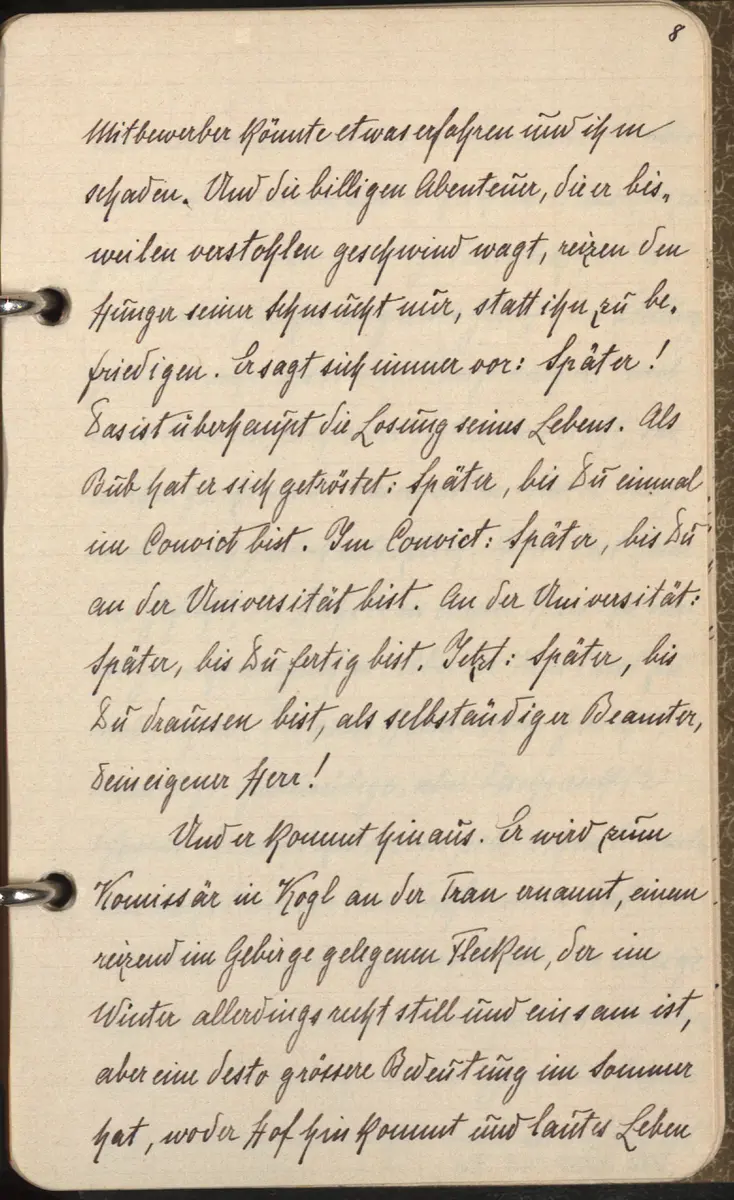 8
Mitbewerber könnte etwas erfahren und ihm
schaden. Und die billigen Abenteuer, die er bis-
weilen verstohlen geschwind wagt, reizen den
Hunger seiner Sehnsucht nur, statt ihn zu be-
friedigen. Er sagt sich immer vor: Später!
Das ist überhaupt die Losung seines Lebens. Als
Bub hat er sich getröstet: Später, bis Du einmal
im Convict bist. Im Convict: Später, bis Du
an der Universität bist. An der Universität:
Später, bis Du fertig bist. Jetzt: Später, bis
Du draussen bist, als selbständiger Beamter,
Dein eigener Herr!
Und er kommt hinaus. Er wird zum
Komissär in Kogl an der Tran ernannt, einem
reizend im Gebirge gelegenen Flecken, der im
Winter allerdings recht still und einsam ist,
aber eine desto grössere Bedeutung im Sommer
hat, wo der Hof hin kommt und lautes Leben